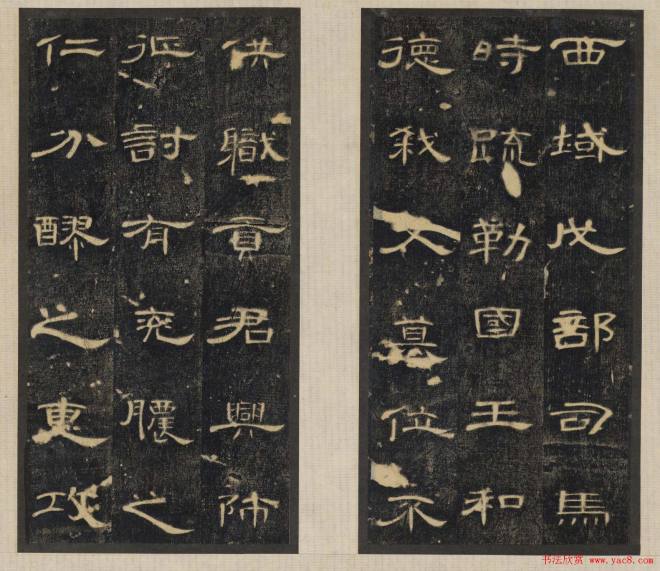 西域戊部司馬
時疏勒國王和
德弒父篡位不
供職貢君興師
征討有兗膿之
仁分醪之惠攻
书法欣赏 www.yac8.com